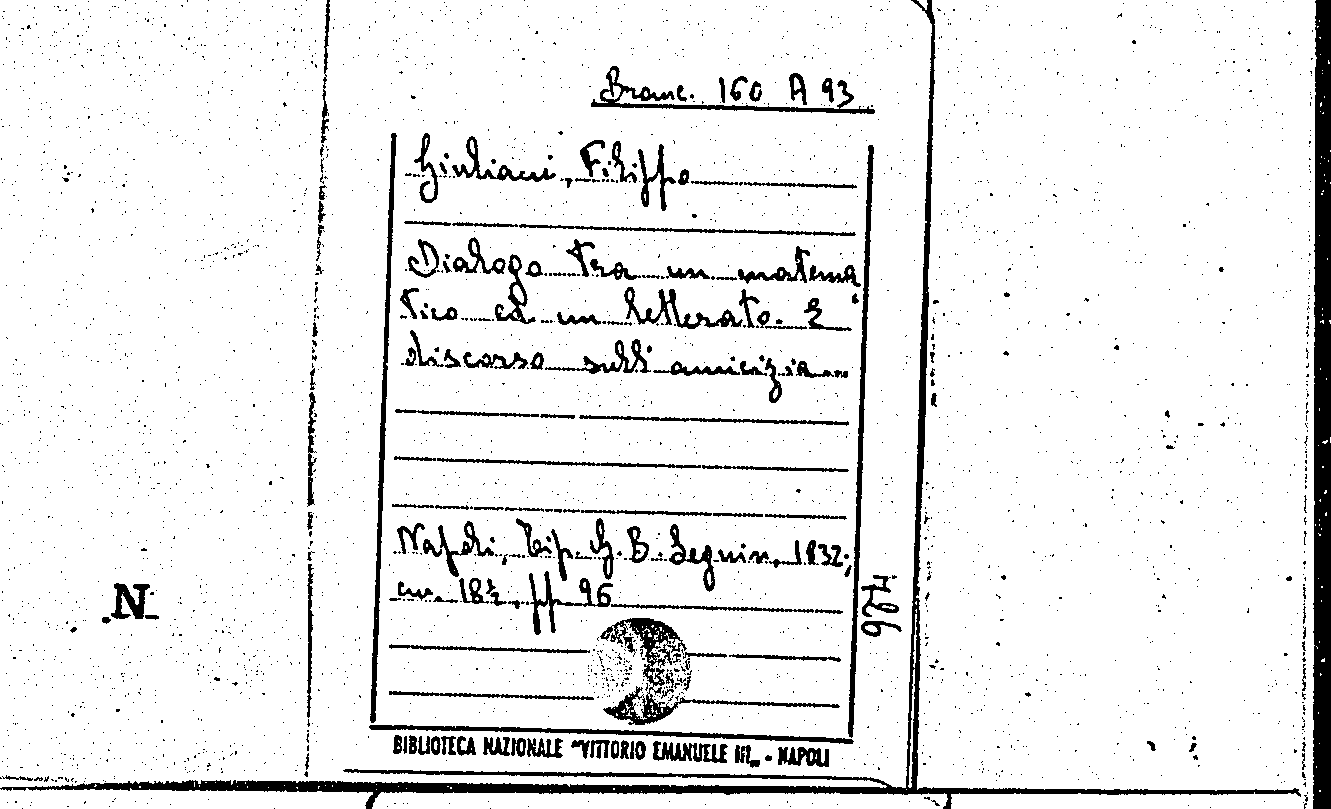 Branc. 160 A 93
Giuliani, Filippo
Dialogo tra un matema
tico ed un letterato. E
discorso sull'amicizia...
Napoli, Tip. G. B. Seguin, 1832;
cm. 18½, pp. 96
N
BIBLIOTECA NAZIONALE "VITTORIO EMANUELE III„ - NAPOLI